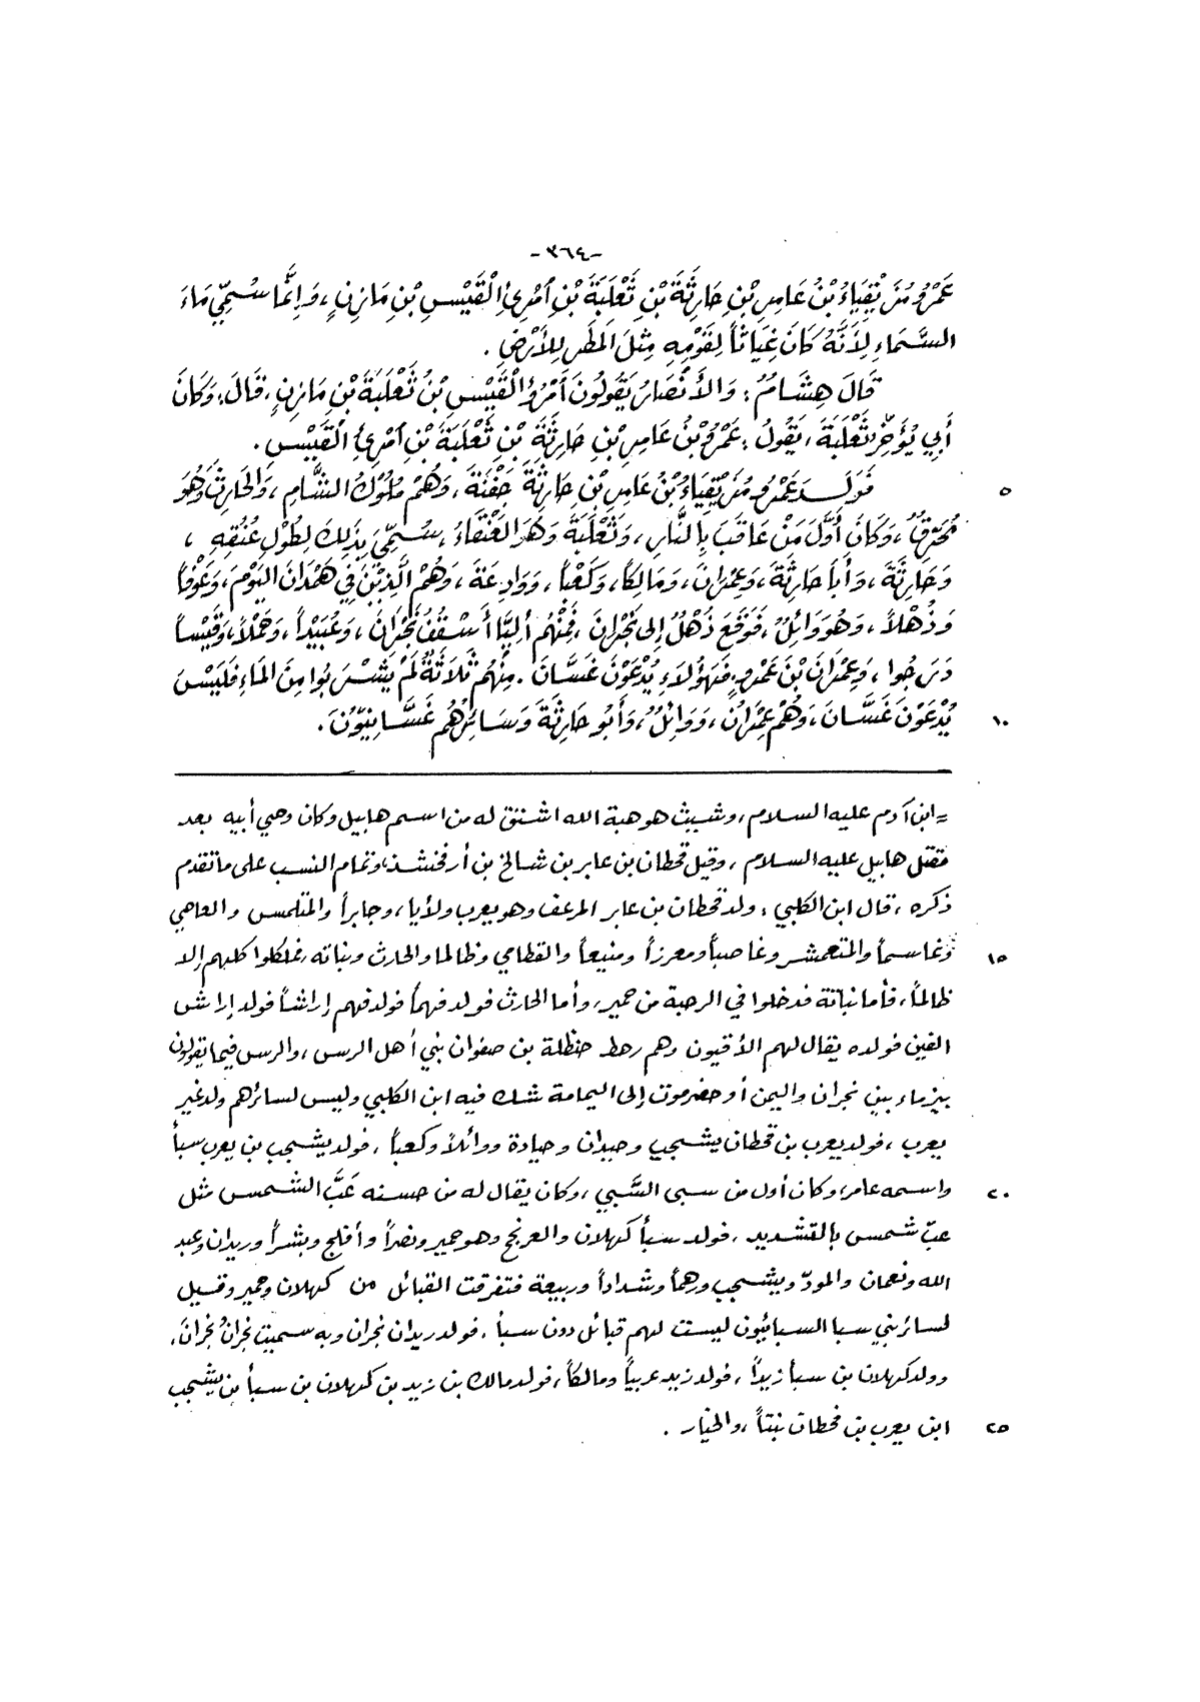 -٣٦٤-
عَمْرُو مُزَيْقِيَاءُ بْنُ عَامِرِ بْنِ حَارِثَةَ بْنِ ثَعْلَبَةَ بْنِ اَمْرِئِ الْقَيْسِ بْنِ مَازِنٍ ، وَإِنَّمَا سُمِّيَ مَاءَ
السَّمَاءِ لِأَنَّهُ كَانَ غِيَاثاً لِقَوْمِهِ مِثْلَ الْمَطَرِ لِلأَرْضِ .
قَالَ هِشَامٌ : وَالأَنْصَارُ يَقُولُونَ اَمْرُؤُ الْقَيْسِ بْنُ ثَعْلَبَةَ بْنِ مَازِنٍ ، قَالَ : وَكَانَ
أَبِي يُؤَخِّرُ ثَعْلَبَةَ ، يَقُولُ : عَمْرُو بْنُ عَامِرِ بْنِ حَارِثَةَ بْنِ ثَعْلَبَةَ بْنِ اَمْرِئِ الْقَيْسِ .
٥ فَوَلَدَ عَمْرُو مُزَيْقِيَاءُ بْنُ عَامِرِ بْنِ حَارِثَةَ جَفْنَةَ ، وَهُمْ مُلُوكُ الشَّامِ ، وَالحَارِثَ وَهُوَ
مُحَرِّقٌ ، وَكَانَ أَوَّلَ مَنْ عَاقَبَ بِالنَّارِ ، وَثَعْلَبَةَ وَهُوَ العَنْقَاءُ ، سُمِّيَ بِذَلِكَ لِطُوْلِ عُنُقِهِ ،
وَحَارِثَةَ ، وَأَبَا حَارِثَةَ ، وَعِمْرَانَ ، وَمَالِكاً ، وَكَعْباً ، وَوَادِعَةَ ، وَهُمْ الَّذِيْنَ فِي هَمْدَانَ اليَوْمَ ، وَعَوْفاً
وَذُهْلاً ، وَهُوَ وَائِلٌ ، فَوَقَعَ ذُهْلٌ إِلى نَجْرَانَ ، فَمِنْهُم أَلِيَّا أُسْقُفُ نَجْرَانَ ، وَعُبَيْداً ، وَحَمَلاً ، وَقَيْساً
دَرَجُوا ، وَعِمْرَانَ بْنَ عَمْرٍو ، فَهَؤُلاَءِ يُدْعَوْنَ غَسَّانَ . مِنْهُم ثَلاَثَةٌ لَمْ يَشْرَبُوا مِنَ المَاءِ فَلَيْسَ
١٠ يُدْعَوْنَ غَسَّانَ ، وَهُمْ عِمْرَانُ ، وَوَائِلٌ ، وَأَبُو حَارِثَةَ وَسَائِرُهُم غَسَّانِيُّوْنَ .
= ابن آدم عليه السلام ، وشيث هو هبة الله اشتق له من اسم هابيل وكان وصي أبيه بعد
مقتل هابيل عليه السلام ، وقيل قحطان بن عابر بن شالخ بن أرفخشذ ، وتمام النسب على ما تقدم
ذكره ، قال ابن الكلبي : ولد قحطان بن عابر المرعف وهو يعرب ولأيا ، وجابراً والمتلمس والعاصي
١٥ وغاسماً والمتغمشر وغاصباً ومعرزاً ومنيعاً والقطامي وظالما والحارث ونباتة ، فهلكوا كلهم إلا
ظالماً ، فأما نباتة فدخلوا في الرحبة من حمير ، وأما الحارث فولد فهماً فولد فهم إراشاً فولد إراش
القين فولده يقال لهم الأقيون وهم رهط حنظلة بن صفوان نبي أهل الرس ، والرس فيما تقولون
بئر ماء بين نجران واليمن أو حضرموت إلى اليمامة شك فيه ابن الكلبي وليس لسائرهم ولد غير
يعرب ، فولد يعرب بن قحطان يشجب وحيدان وجيادة ووائلاً وكعباً ، فولد يشجب بن يعرب سبأ
٢٠ واسمه عامر ، وكان أول من سبى السَّبي ، وكان يقال له من حسنه عَبَّ الشمس مثل
عبّ شمس بالتشديد ، فولد سبأ كهلان والعرنج وهو حمير ونصراً وأفلح وبشراً وريدان وعبد
الله ونعمان والمودّ ويشجب ورهماً وشداداً وربيعة فتفرقت القبائل من كهلان وحمير وقيل
لسائر بني سبا السبائيون ليست لهم قبائل دون سبأ ، فولد ريدان نجران وبه سميت نجرانُ نجرانَ ،
وولد كهلان بن سبأ زيداً ، فولد زيد عريباً ومالكاً ، فولد مالك بن زيد بن كهلان بن سبأ بن يشجب
٢٥ ابن يعرب بن قحطان نبتاً ، والخيار .